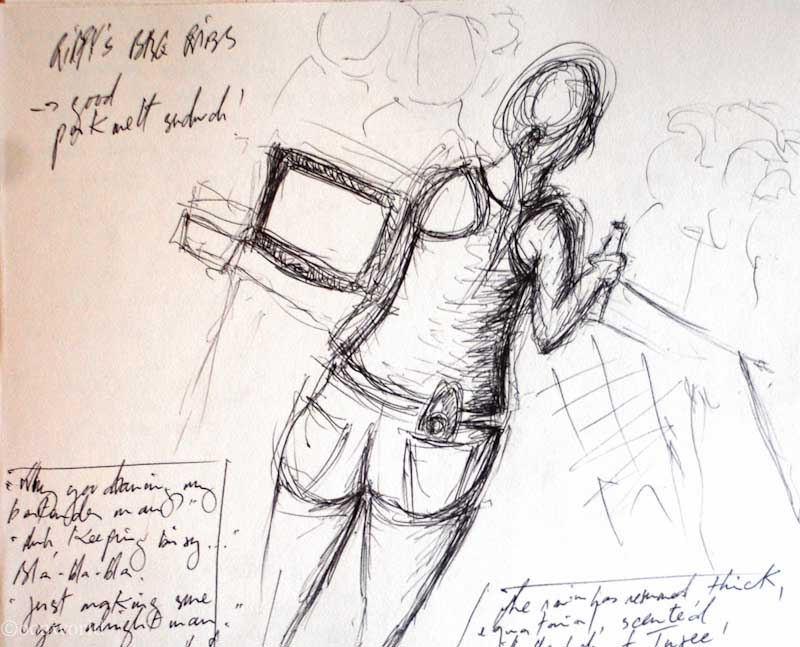 RIPPI'S BBQ RIBS
→ good
pork melt sandwich!
"Why you drawing my
bartender man?"
"Auh keeping busy..."
Bla-bla-bla.
"just making sure
you alright man."
The rain has resumed thick,
equatorial, scented